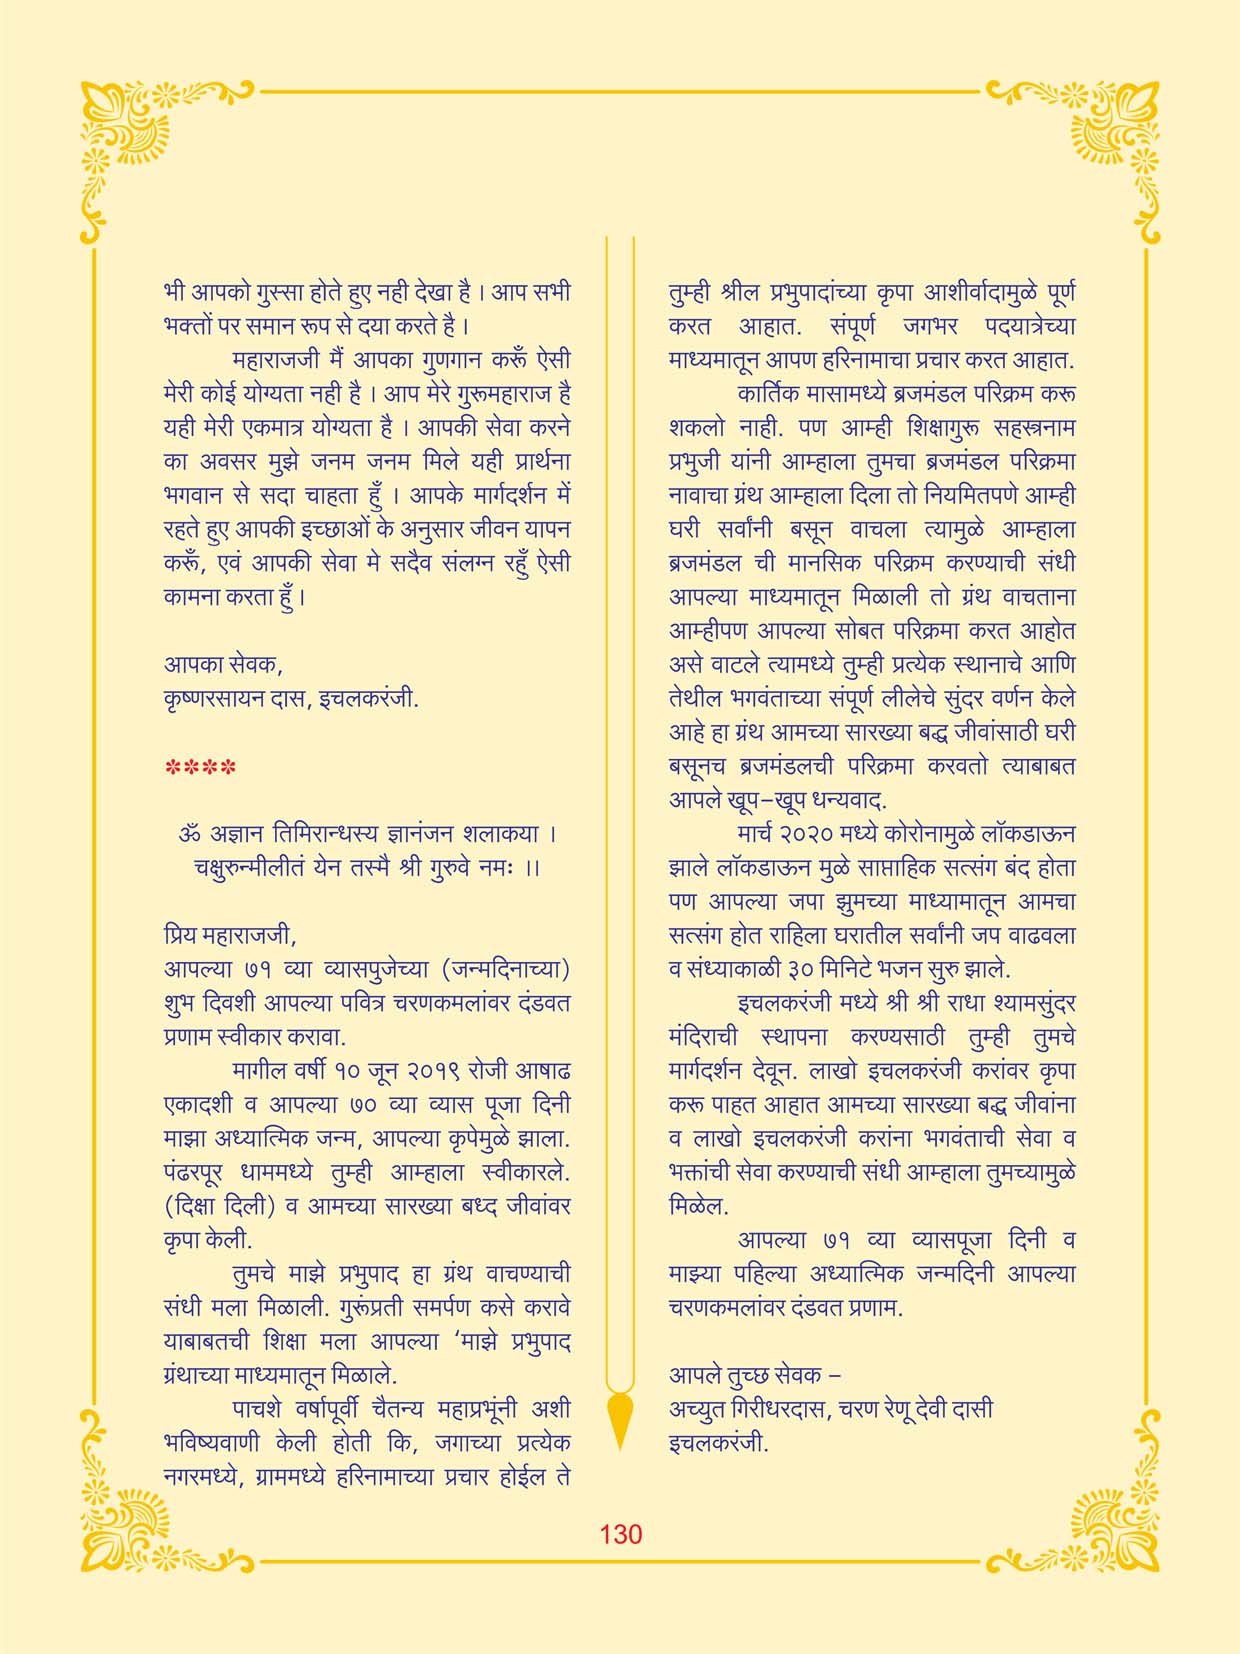 भी आपको गुस्सा होते हुए नही देखा है । आप सभी
भक्तों पर समान रूप से दया करते है ।
महाराजजी मैं आपका गुणगान करूँ ऐसी
मेरी कोई योग्यता नही है । आप मेरे गुरूमहाराज है
यही मेरी एकमात्र योग्यता है । आपकी सेवा करने
का अवसर मुझे जनम जनम मिले यही प्रार्थना
भगवान से सदा चाहता हुँ । आपके मार्गदर्शन में
रहते हुए आपकी इच्छाओं के अनुसार जीवन यापन
करूँ, एवं आपकी सेवा मे सदैव संलग्न रहुँ ऐसी
कामना करता हुँ ।
आपका सेवक,
कृष्णरसायन दास, इचलकरंजी.
****
ॐ अज्ञान तिमिरान्धस्य ज्ञानंजन शलाकया ।
चक्षुरुन्मीलीतं येन तस्मै श्री गुरुवे नमः ।।
प्रिय महाराजजी,
आपल्या ७१ व्या व्यासपुजेच्या (जन्मदिनाच्या)
शुभ दिवशी आपल्या पवित्र चरणकमलांवर दंडवत
प्रणाम स्वीकार करावा.
मागील वर्षी १० जून २०१९ रोजी आषाढ
एकादशी व आपल्या ७० व्या व्यास पूजा दिनी
माझा अध्यात्मिक जन्म, आपल्या कृपेमुळे झाला.
पंढरपूर धाममध्ये तुम्ही आम्हाला स्वीकारले.
(दिक्षा दिली) व आमच्या सारख्या बध्द जीवांवर
कृपा केली.
तुमचे माझे प्रभुपाद हा ग्रंथ वाचण्याची
संधी मला मिळाली. गुरूंप्रती समर्पण कसे करावे
याबाबतची शिक्षा मला आपल्या ‘माझे प्रभुपाद
ग्रंथाच्या माध्यमातून मिळाले.
पाचशे वर्षापूर्वी चैतन्य महाप्रभूंनी अशी
भविष्यवाणी केली होती कि, जगाच्या प्रत्येक
नगरमध्ये, ग्राममध्ये हरिनामाच्या प्रचार होईल ते
तुम्ही श्रील प्रभुपादांच्या कृपा आशीर्वादामुळे पूर्ण
करत आहात. संपूर्ण जगभर पदयात्रेच्या
माध्यमातून आपण हरिनामाचा प्रचार करत आहात.
कार्तिक मासामध्ये ब्रजमंडल परिक्रम करू
शकलो नाही. पण आम्ही शिक्षागुरू सहस्त्रनाम
प्रभुजी यांनी आम्हाला तुमचा ब्रजमंडल परिक्रमा
नावाचा ग्रंथ आम्हाला दिला तो नियमितपणे आम्ही
घरी सर्वांनी बसून वाचला त्यामुळे आम्हाला
ब्रजमंडल ची मानसिक परिक्रम करण्याची संधी
आपल्या माध्यमातून मिळाली तो ग्रंथ वाचताना
आम्हीपण आपल्या सोबत परिक्रमा करत आहोत
असे वाटले त्यामध्ये तुम्ही प्रत्येक स्थानाचे आणि
तेथील भगवंताच्या संपूर्ण लीलेचे सुंदर वर्णन केले
आहे हा ग्रंथ आमच्या सारख्या बद्ध जीवांसाठी घरी
बसूनच ब्रजमंडलची परिक्रमा करवतो त्याबाबत
आपले खूप-खूप धन्यवाद.
मार्च २०२० मध्ये कोरोनामुळे लॉकडाऊन
झाले लॉकडाऊन मुळे साप्ताहिक सत्संग बंद होता
पण आपल्या जपा झुमच्या माध्यामातून आमचा
सत्संग होत राहिला घरातील सर्वांनी जप वाढवला
व संध्याकाळी ३० मिनिटे भजन सुरु झाले.
इचलकरंजी मध्ये श्री श्री राधा श्यामसुंदर
मंदिराची स्थापना करण्यसाठी तुम्ही तुमचे
मार्गदर्शन देवून. लाखो इचलकरंजी करांवर कृपा
करू पाहत आहात आमच्या सारख्या बद्ध जीवांना
व लाखो इचलकरंजी करांना भगवंताची सेवा व
भक्तांची सेवा करण्याची संधी आम्हाला तुमच्यामुळे
मिळेल.
आपल्या ७१ व्या व्यासपूजा दिनी व
माझ्या पहिल्या अध्यात्मिक जन्मदिनी आपल्या
चरणकमलांवर दंडवत प्रणाम.
आपले तुच्छ सेवक –
अच्युत गिरीधरदास, चरण रेणू देवी दासी
इचलकरंजी.
130